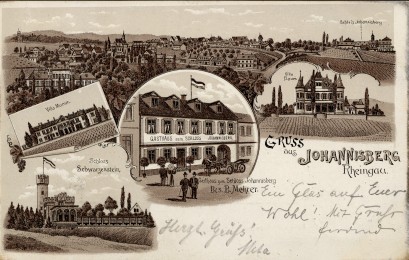 Schloss Johannisberg
Villa Mumm.
Schloss
Schwarzenstein.
GASTHAUS ZUM SCHLOSS JOHANNISBERG
Gasthaus zum Schloss Johannisberg
Bes. B. Mehrer.
Villa
GRUSS
aus
JOHANNISBERG
Rheingau.
Ein Glas auf Euer
Wohl! Mit Gruß
Herzl. Grüße!